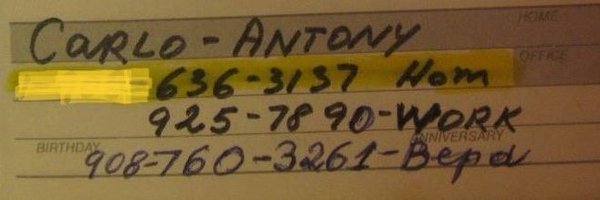 HOME
CARLO - ANTONY
OFFICE
636-3137 Hom
925-7890-WORK
ANNIVERSARY
BIRTHDAY
908-760-3261-Bepd